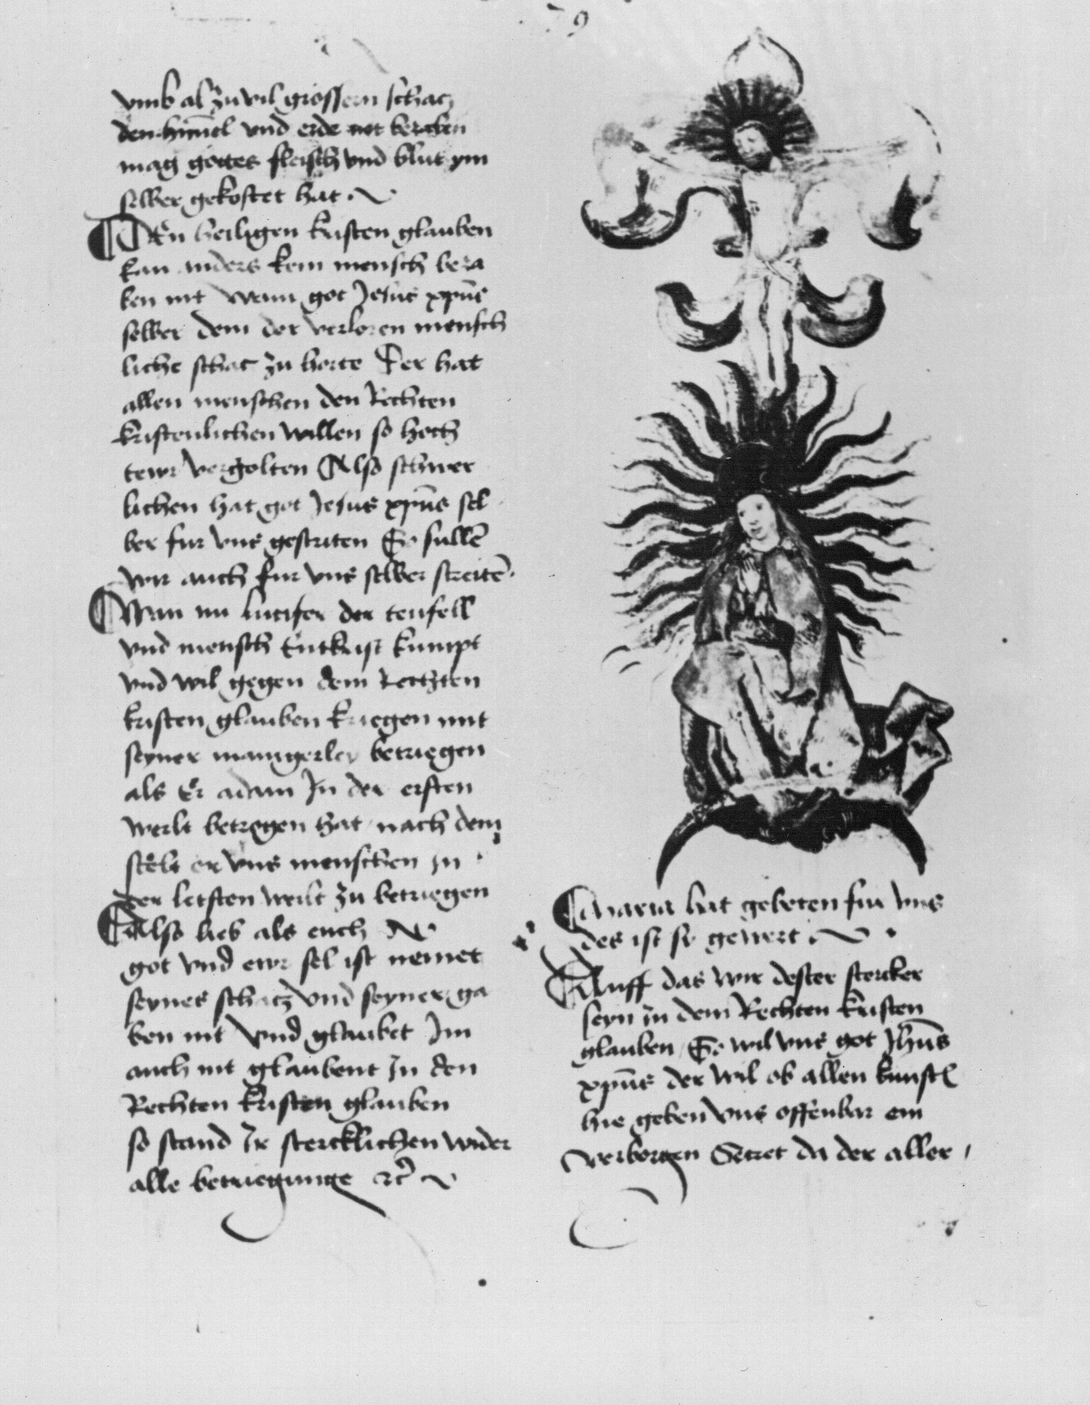 9
vmb al zu vil grossern schacz
den himel vnd erde nit bezalen
mag gottes fleisch vnd blut ym
selber gekostet hat
Den heiligen kristen glauben
kan anders kein mensch beza
len nit Wann got Jesus xpūs
selber dem der verloren mensch
liche schacz zu horte Der hat
allen menschen den Rechten
kristenlichen willen so hoch
tewr vergolten Also schwer
lichen hat got Jesus xpūs sel
ber fur vns gestriten So sullē
wir auch fur vns selber streitē
Wan nu lucifer der teufell
vnd mensch Entkrist kumpt
vnd wil gegen dem Letzten
kristen glauben kriegen mit
seyner mangerley betriegen
als Er adam In der ersten
werlt betrogen hat nach dem
stelt er vns menschen in
der letsten werlt zu betriegen
Also lieb als euch
got vnd ewr sel ist nemet
seynes schacz vnd seyner ga
ben nit Vnd glaubet Im
auch nit glaubent In den
Rechten kristen glauben
so stand Ir stercklichen wider
alle betriegunge ꝛc̄
Maria hat gebeten fur vns
des ist sy gewert
Auff das wir dester stercker
seyn in dem Rechten kristen
glauben So wil vns got Jhūs
xpūs der wil ob allen kunstē
hie geben vns offenbar ein
verborgen Secret da der aller